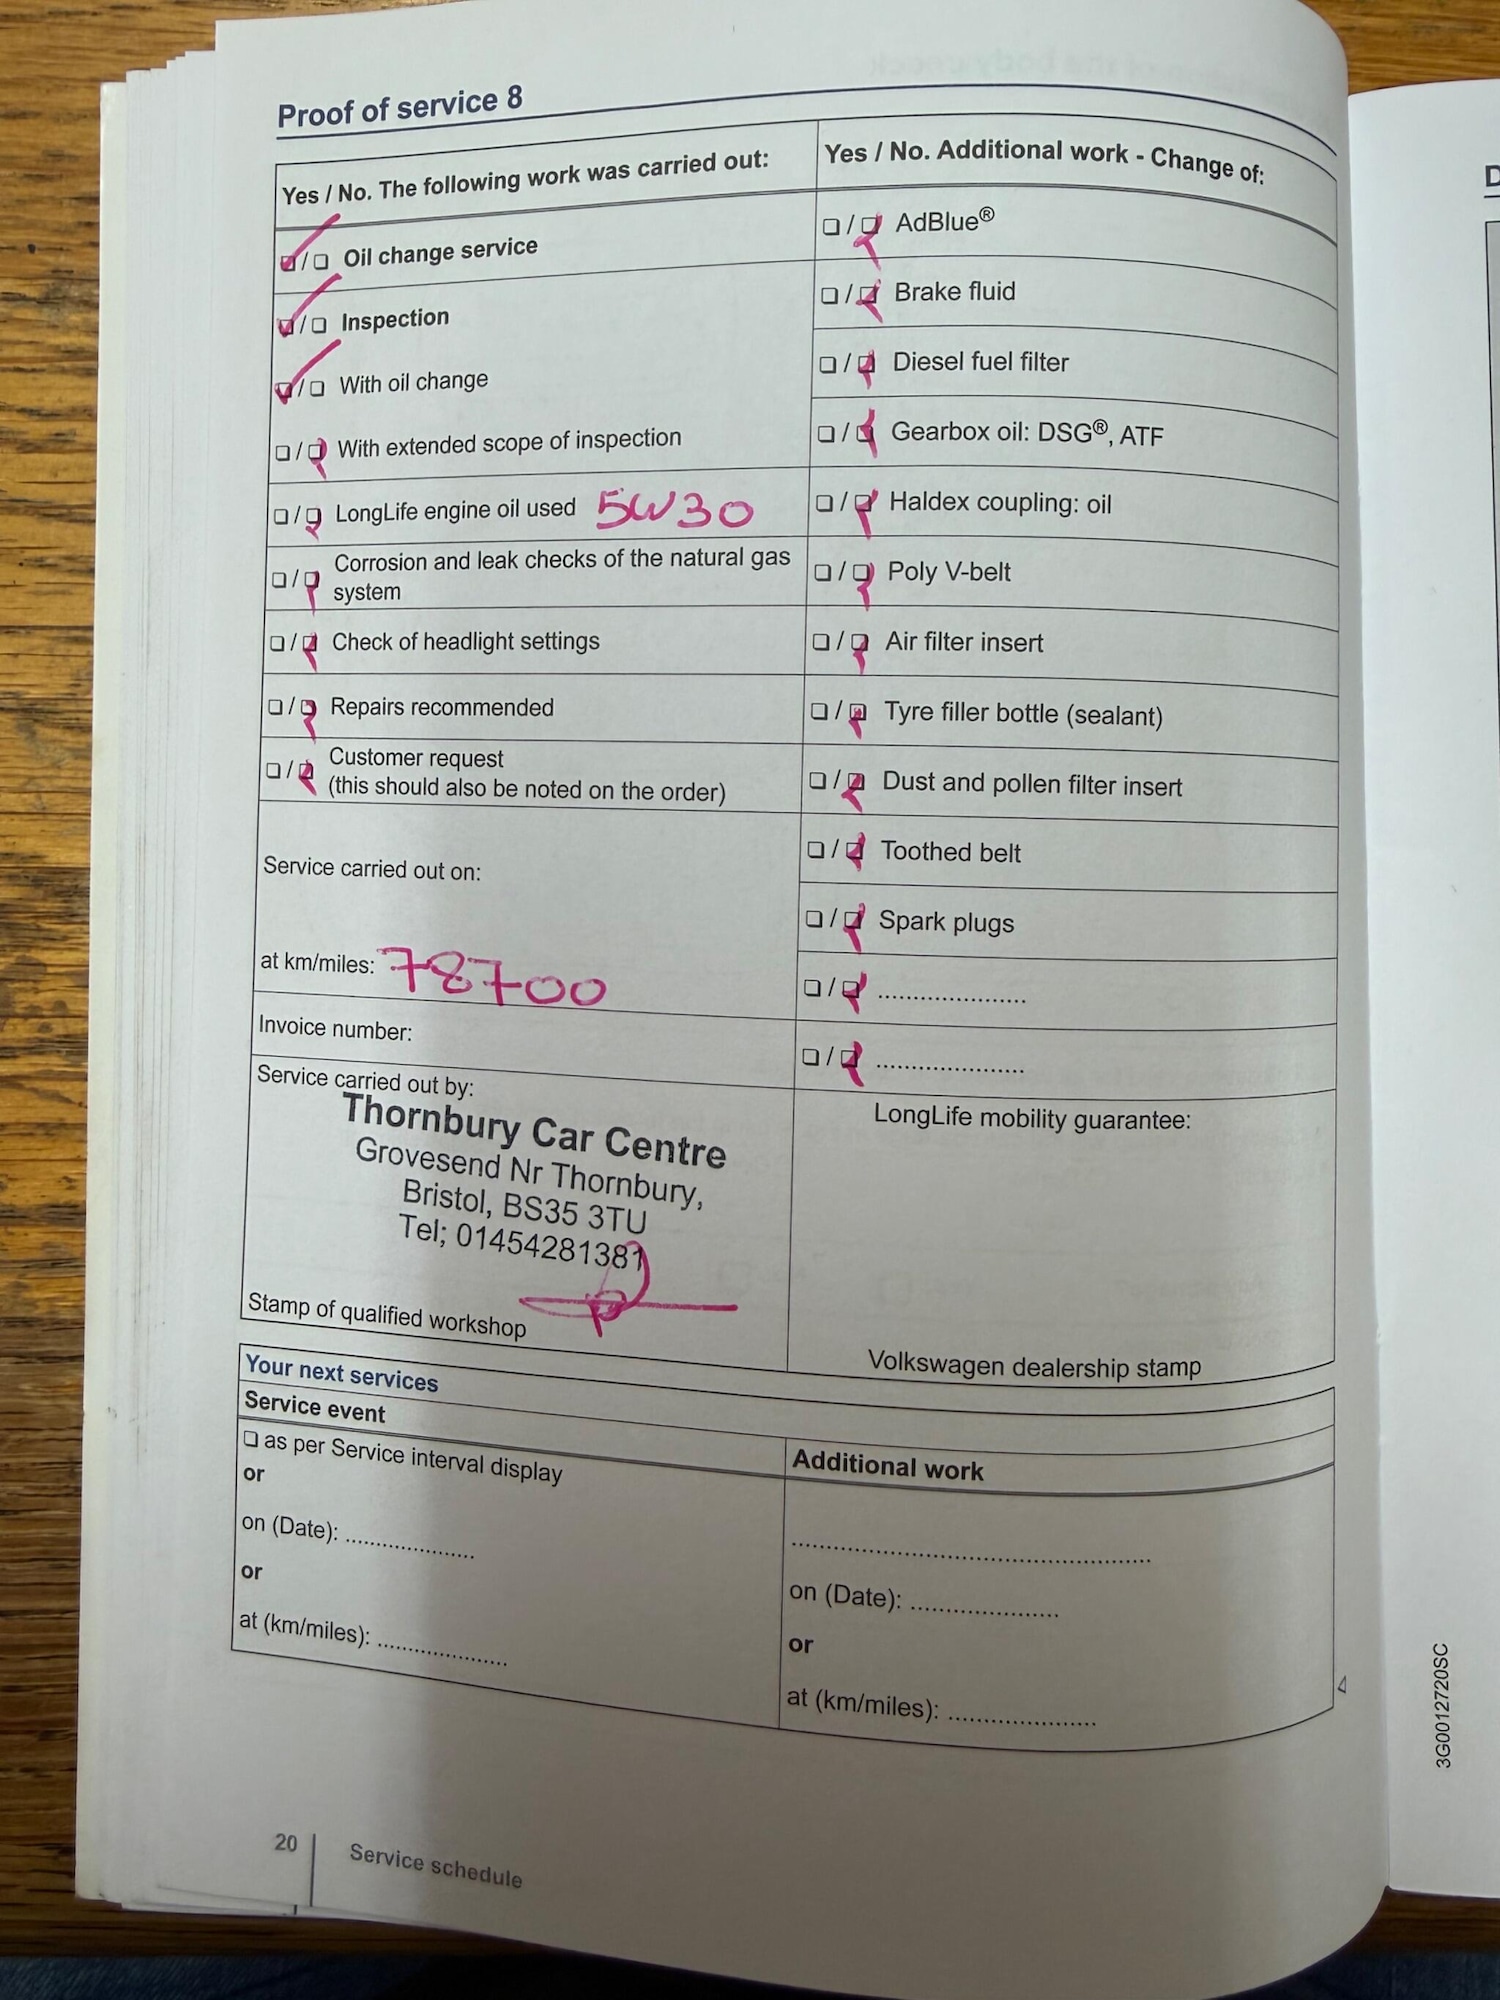 Proof of service 8
Yes / No. The following work was carried out:
Oil change service
Inspection
With oil change
With extended scope of inspection
LongLife engine oil used 5W30
Corrosion and leak checks of the natural gas
system
Check of headlight settings
Repairs recommended
Customer request
(this should also be noted on the order)
Service carried out on:
at km/miles: 78700
Invoice number:
Service carried out by:
Thornbury Car Centre
Grovesend Nr Thornbury,
Bristol, BS35 3TU
Tel; 01454281381
Stamp of qualified workshop
Yes / No. Additional work - Change of:
AdBlue®
Brake fluid
Diesel fuel filter
Gearbox oil: DSG®, ATF
Haldex coupling: oil
Poly V-belt
Air filter insert
Tyre filler bottle (sealant)
Dust and pollen filter insert
Toothed belt
Spark plugs
LongLife mobility guarantee:
Volkswagen dealership stamp
Your next services
Service event
as per Service interval display
or
on (Date): .....................
or
at (km/miles): .....................
Additional work
on (Date): .....................
or
at (km/miles): .....................
20
Service schedule
3G0012720SC